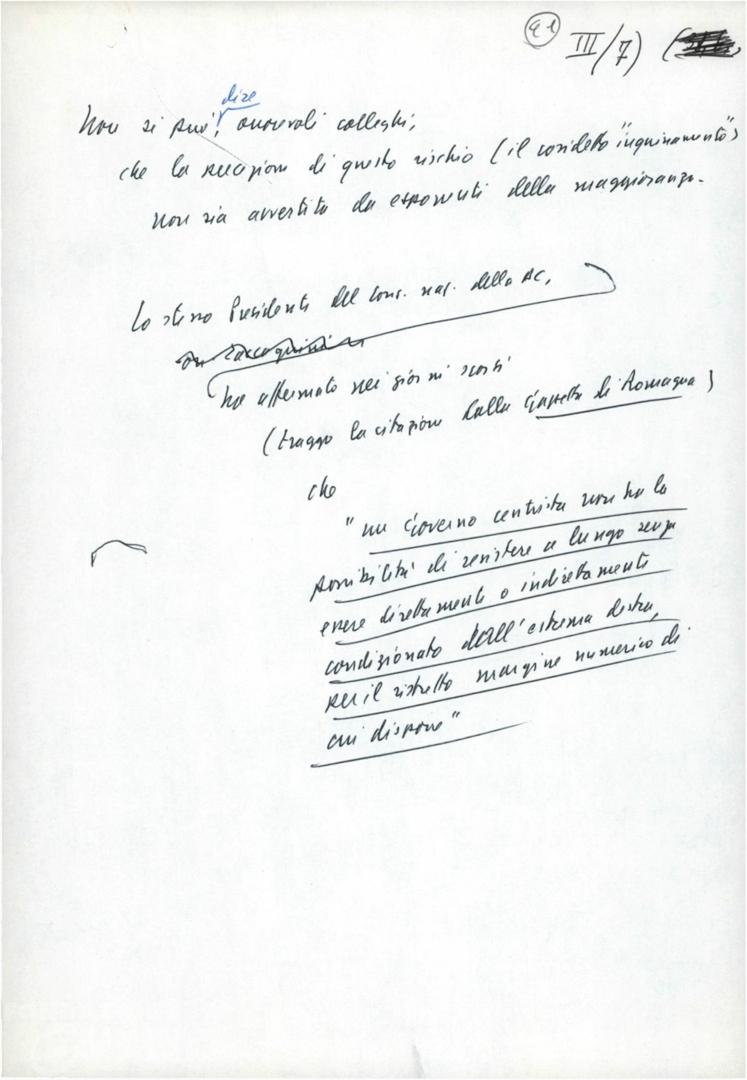 91 III/7)
Non si può, dire onorevoli colleghi,
che la percezione di questo rischio (il cosidetto "inquinamento")
non sia avvertita da esponenti della maggioranza.
Lo stesso Presidente del Cons. naz. della DC,
on. Zaccagnini
ha affermato nei giorni scorsi
(traggo la citazione dalla Gazzetta di Romagna)
che
"un Governo centrista non ha la
possibilità di resistere a lungo senza
essere direttamente o indirettamente
condizionato dall'estrema destra,
per il ristretto margine numerico di
cui dispone"